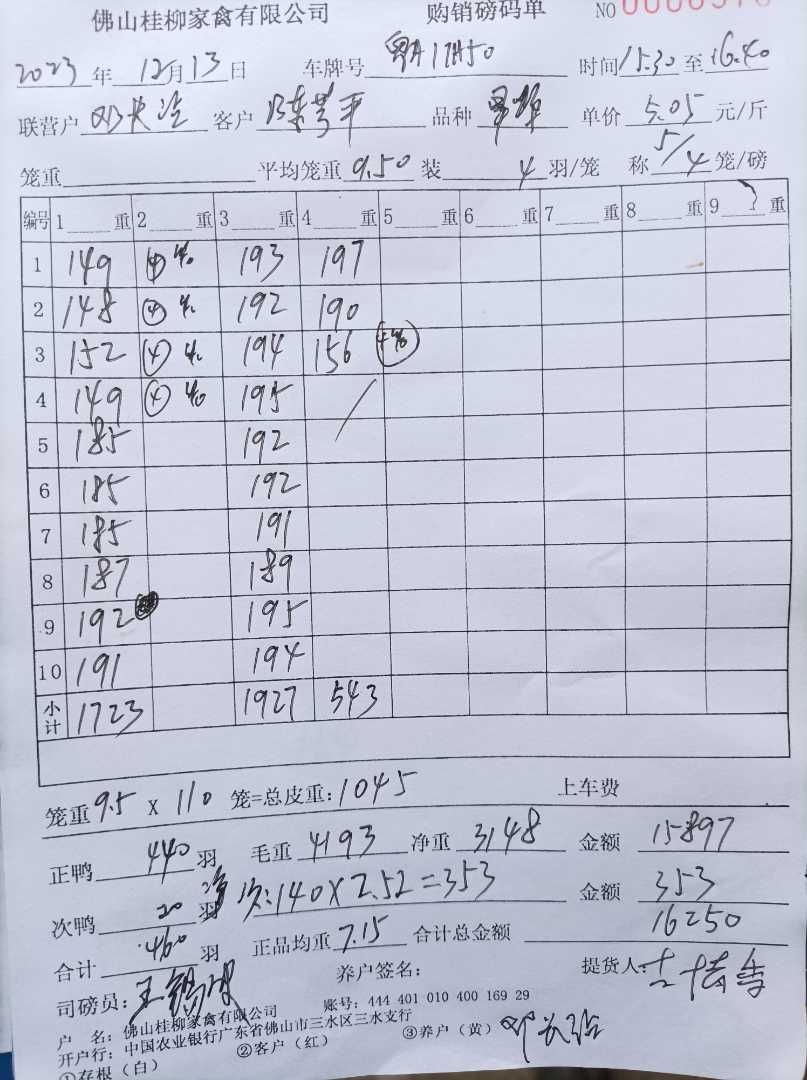 佛山桂柳家禽有限公司 购销磅码单 NO
2023年 12月13日 车牌号 时间15.30至16.40
联营户 客户 陈 平 品种 单价 5.05 元/斤
笼重 平均笼重 9.50 装 4 羽/笼 称 5/4 笼/磅
编号 1 重 2 重 3 重 4 重 5 重 6 重 7 重 8 重 9 重
1 149 ④ 193 197
2 148 ④ 192 190
3 152 ④ 194 156
4 149 ④ 195
5 185 192
6 185 192
7 185 191
8 187 189
9 192 195
10 191 194
小计 1723 1927 543
笼重 9.5 x 110 笼=总皮重: 1045 上车费
正鸭 440 羽 毛重 4193 净重 3148 金额 15897
次鸭 20 羽 净次:140X2.52=353 金额 353
合计 460 羽 正品均重 7.15 合计总金额 16250
司磅员: 王锡 养户签名: 提货人:
户 名: 佛山桂柳家禽有限公司 账号: 444 401 010 400 169 29
开户行: 中国农业银行广东省佛山市三水区三水支行
①存根(白) ②客户(红) ③养户(黄)